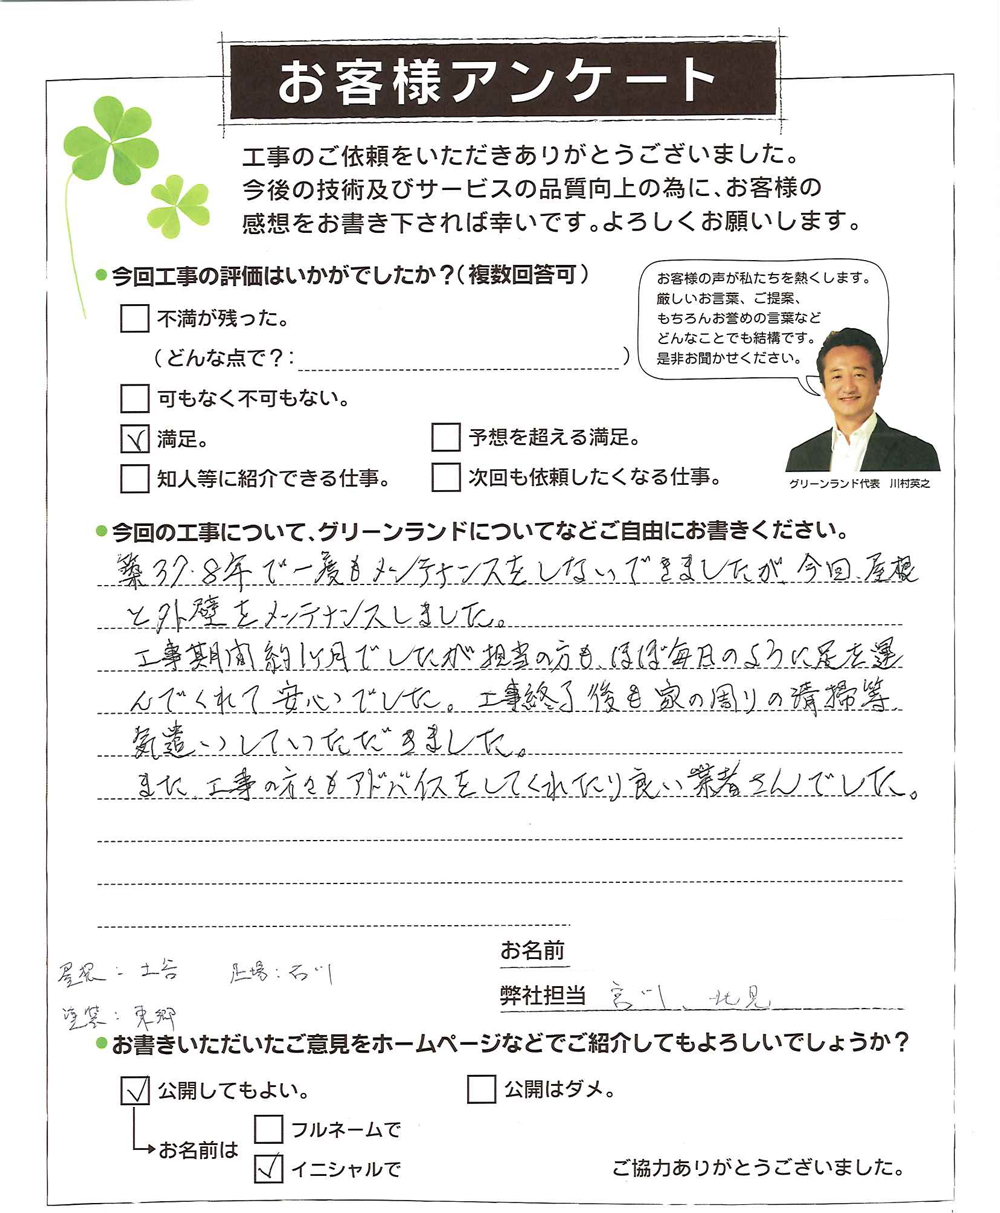 お客様アンケート
工事のご依頼をいただきありがとうございました。
今後の技術及びサービスの品質向上の為に、お客様の
感想をお書き下されば幸いです。よろしくお願いします。
●今回工事の評価はいかがでしたか？（複数回答可）
お客様の声が私たちを熱くします。
厳しいお言葉、ご提案、
もちろんお誉めの言葉など
どんなことでも結構です。
是非お聞かせください。
□ 不満が残った。
（どんな点で？：　　　）
□ 可もなく不可もない。
☑ 満足。　□ 予想を超える満足。
□ 知人等に紹介できる仕事。　□ 次回も依頼したくなる仕事。
グリーンランド代表　川村英之
●今回の工事について、グリーンランドについてなどご自由にお書きください。
築37.8年で一度もメンテナンスをしないできましたが、今回、屋根
と外壁をメンテナンスしました。
工事期間約1ヶ月でしたが担当の方も、ほぼ毎日のように足を運
んでくれて安心でした。工事終了後も家の周りの清掃等
気遣いしていただきました。
また、工事の方々もアドバイスをしてくれたり良い業者さんでした。
お名前
屋根：土谷　足場：石川
弊社担当　宮川、北見
塗装：東郷
●お書きいただいたご意見をホームページなどでご紹介してもよろしいでしょうか？
☑ 公開してもよい。　□ 公開はダメ。
お名前は　□ フルネームで
☑ イニシャルで
ご協力ありがとうございました。